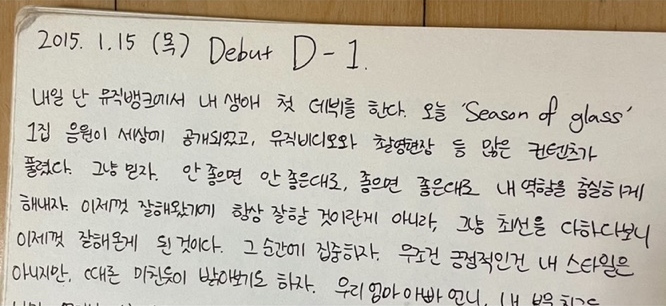 2015. 1. 15 (목) Debut D-1.
내일 난 뮤직뱅크에서 내 생애 첫 데뷔를 한다. 오늘 'Season of glass'
1집 음원이 세상에 공개되었고, 뮤직비디오와 촬영현장 등 많은 컨텐츠가
풀렸다. 그냥 믿자. 안 좋으면 안 좋은대로, 좋으면 좋은대로 내 역할을 충실하게
해내자. 이제껏 잘해왔기에 항상 잘할 것이란게 아니라, 그냥 최선을 다하다보니
이제껏 잘해온게 된 것이다. 그 순간에 집중하자. 무조건 긍정적인건 내 스타일은
아니지만, 때론 미친듯이 받아보기도 하자. 우리 엄마 아빠 언니, 내